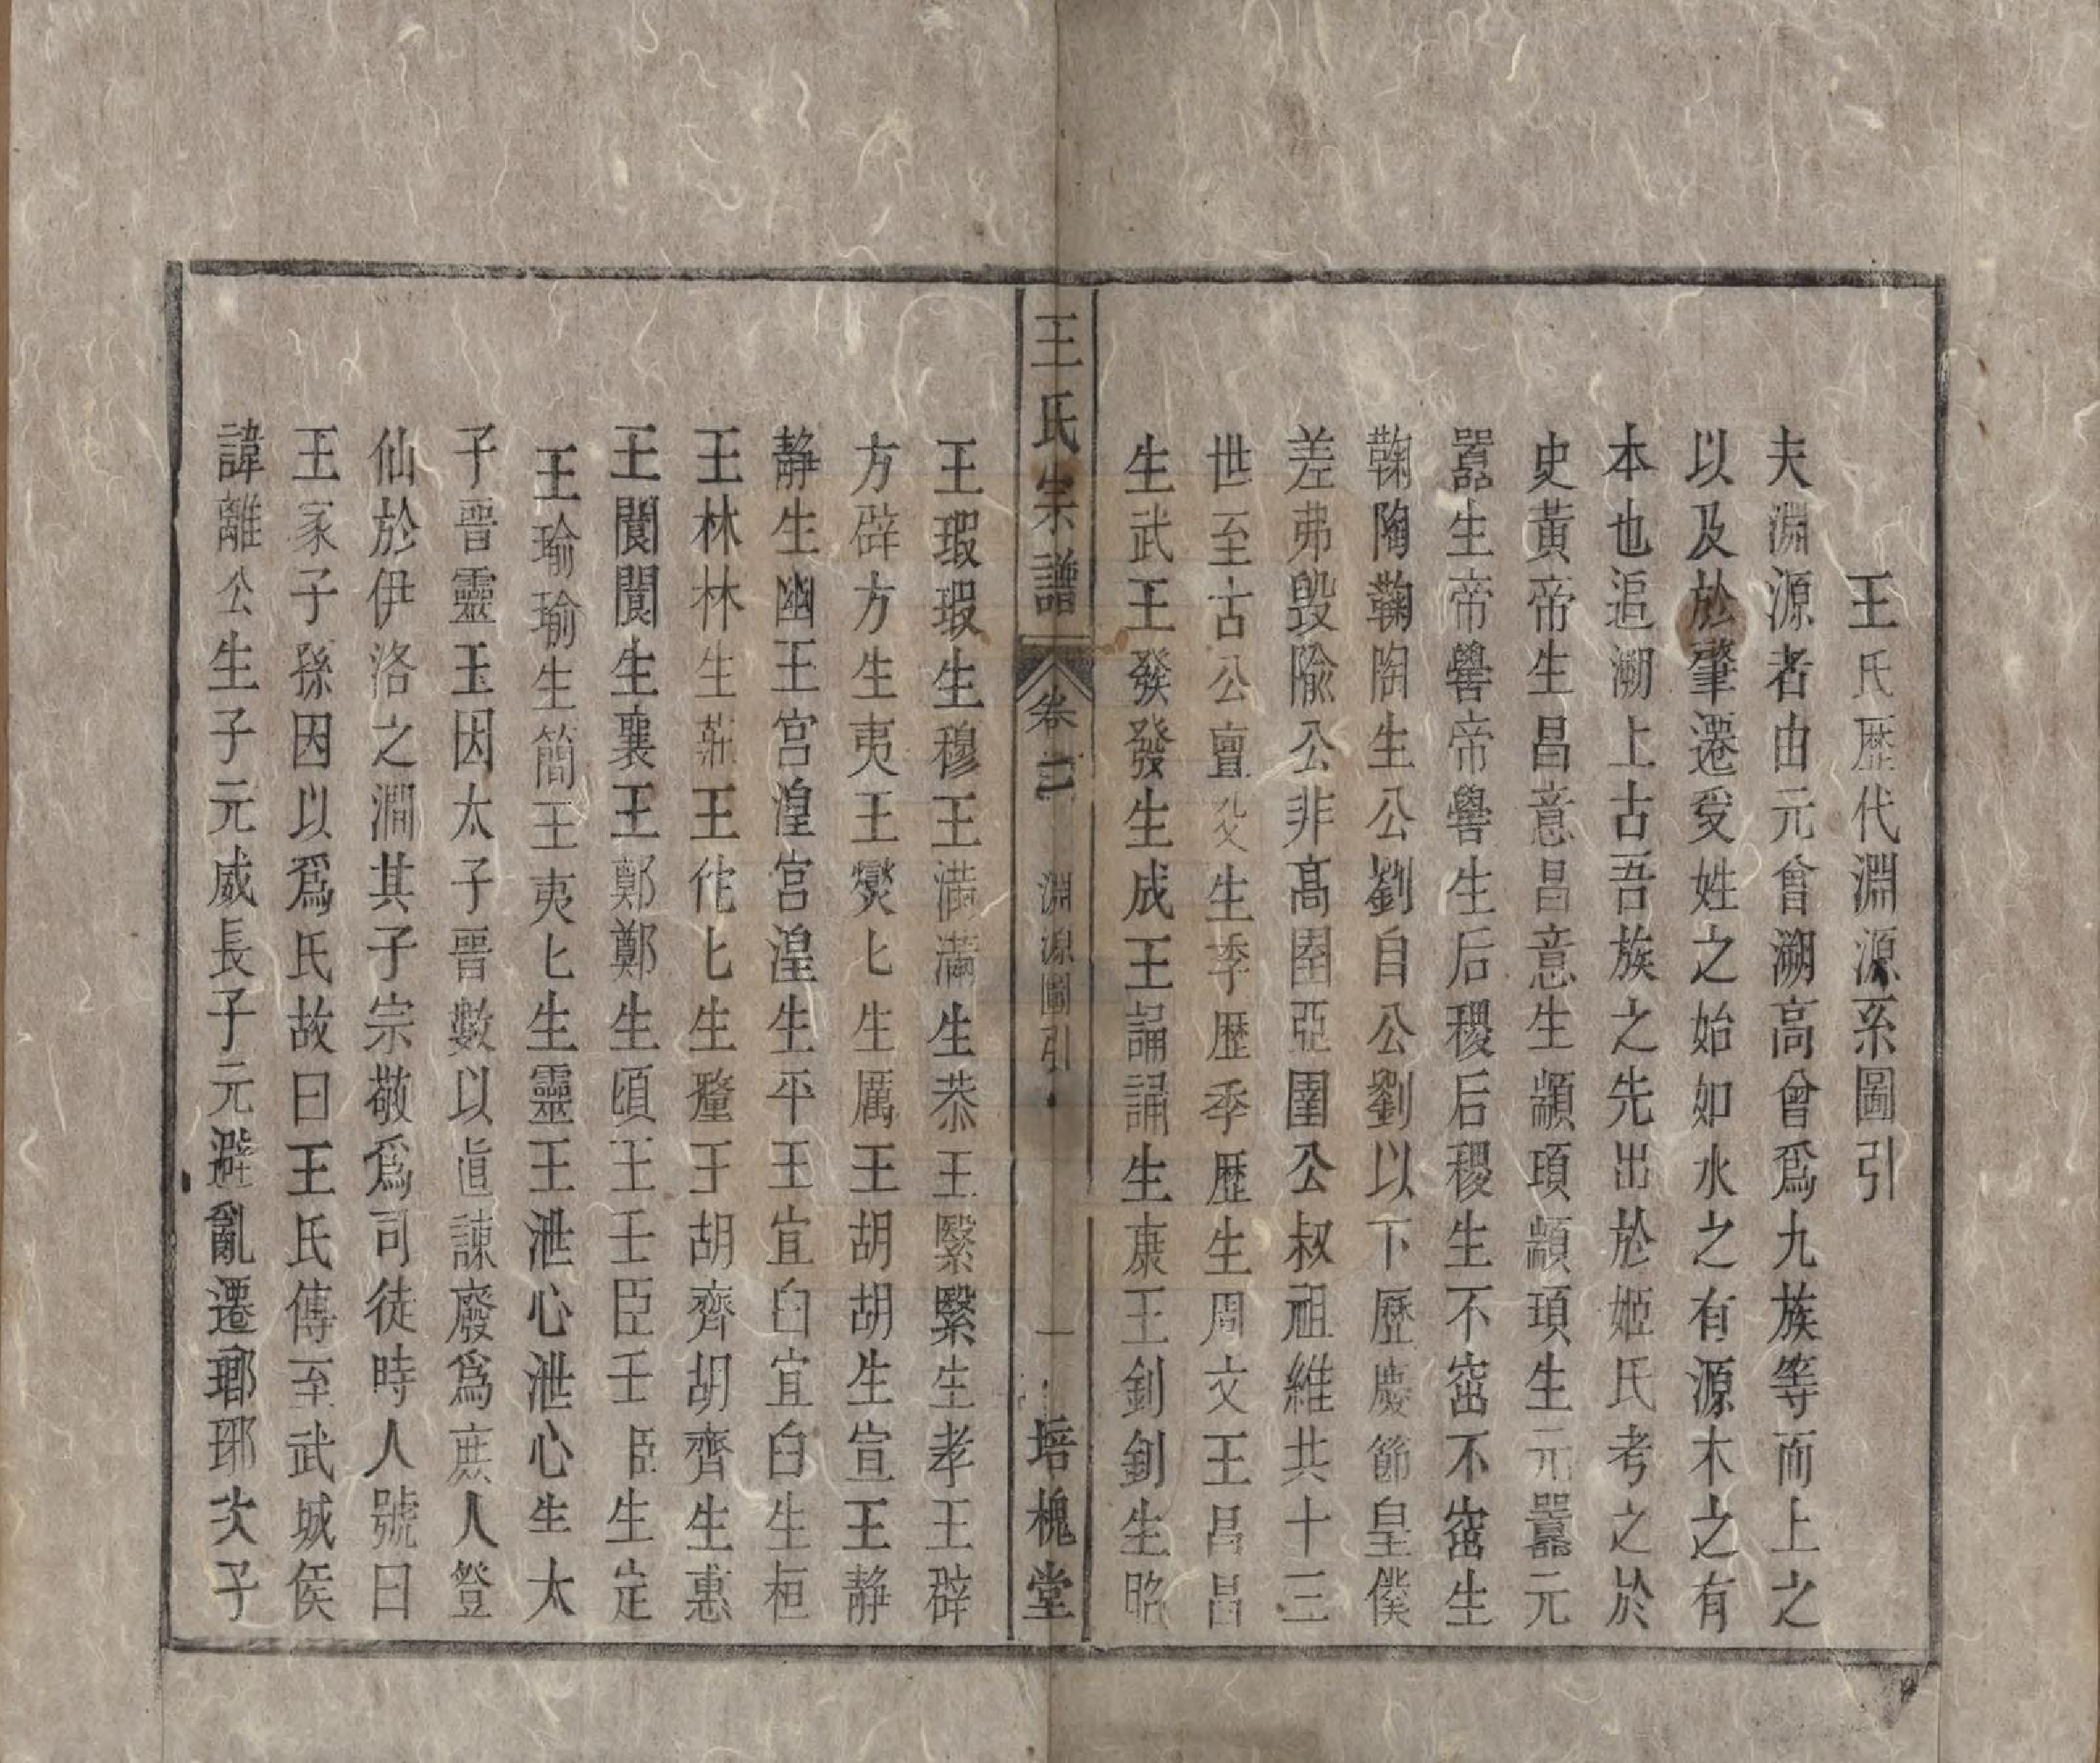 王氏歷代淵源系圖引
夫淵源者由元會溯高曾爲九族等而上之
以及於肇遷受姓之始如水之有源木之有
本也追溯上古吾族之先出於姬氏考之於
史黃帝生昌意昌意生顓頊顓頊生元囂元
囂生帝嚳帝嚳生后稷后稷生不窋不窋生
鞠陶鞠陶生公劉自公劉以下歷慶節皇僕
差弗毀隃公非高圉亞圉公叔祖維共十三
世至古公亶父生季歷季歷生周文王昌昌
生武王發發生成王誦誦生康王釗釗生昭
王氏宗譜 卷二 淵源圖引 一 培槐堂
王瑕瑕生穆王滿滿生恭王繄繄生孝王辟
方辟方生夷王燮匕生厲王胡胡生宣王靜
靜生幽王宮湟宮湟生平王宜臼宜臼生桓
王林林生莊王佗匕生釐王胡齊胡齊生惠
王閬閬生襄王鄭鄭生頃王壬臣壬臣生定
王瑜瑜生簡王夷匕生靈王泄心泄心生太
子晉靈王因太子晉數以直諫廢爲庶人登
仙於伊洛之澗其子宗敬爲司徒時人號曰
王家子孫因以爲氏故曰王氏傳至武城侯
諱離公生子元威長子元避亂遷瑯琊次子